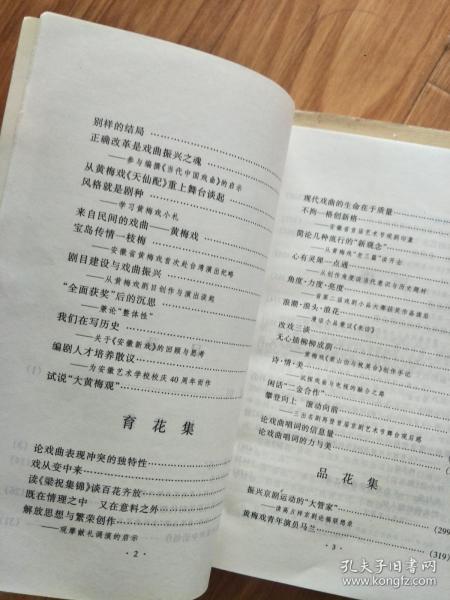 别样的结局
正确改革是戏曲振兴之魂
——参与编撰《当代中国戏曲》的启示
从黄梅戏《天仙配》重上舞台谈起
风格就是剧种
——学习黄梅戏小札
来自民间的戏曲——黄梅戏
宝岛传情一枝梅
——安徽省黄梅戏首次赴台湾演出纪略
剧目建设与戏曲振兴
——从黄梅戏剧目创作与演出谈起
“全面获奖”后的沉思
——兼论“整体性”
我们在写历史
——关于《安徽新戏》的回顾与思考
编剧人才培养散议
——为安徽艺术学校校庆40周年而作
试说“大黄梅观”
育花集
论戏曲表现冲突的独特性
戏从变中来
读《梁祝集锦》谈百花齐放
既在情理之中 又在意料之外
解放思想与繁荣创作
——观摩献礼调演的启示
· 2 ·
现代戏曲的生命在于质量
不拘一格创新格
——安徽省首届艺术节戏剧印象
简论几种流行的“新观念”
——从黄梅戏“老三篇”谈开去
心有灵犀一点通
——从创作角度谈当代意识与历史题材
角度·力度·亮度
——首届二省戏剧小品大赛获奖作品谱后
浪潮·浪头·浪花
——漫话小品兼议《来访》
改戏三谈
无心插柳柳成荫
——黄梅戏《梁山伯与祝英台》创作手记
诗·情·美
——试探戏曲与电视的融合之路
闲话“三金合作”
攀登向上 滚动向前
——三出名剧两登首京剧艺术节舞台观后感
论戏曲唱词的信息量
论戏曲唱词的力与美
品花集
振兴京剧运动的“大管家”
(299
黄梅戏青年演员马兰
(319)
· 3 ·
孔夫子旧书网